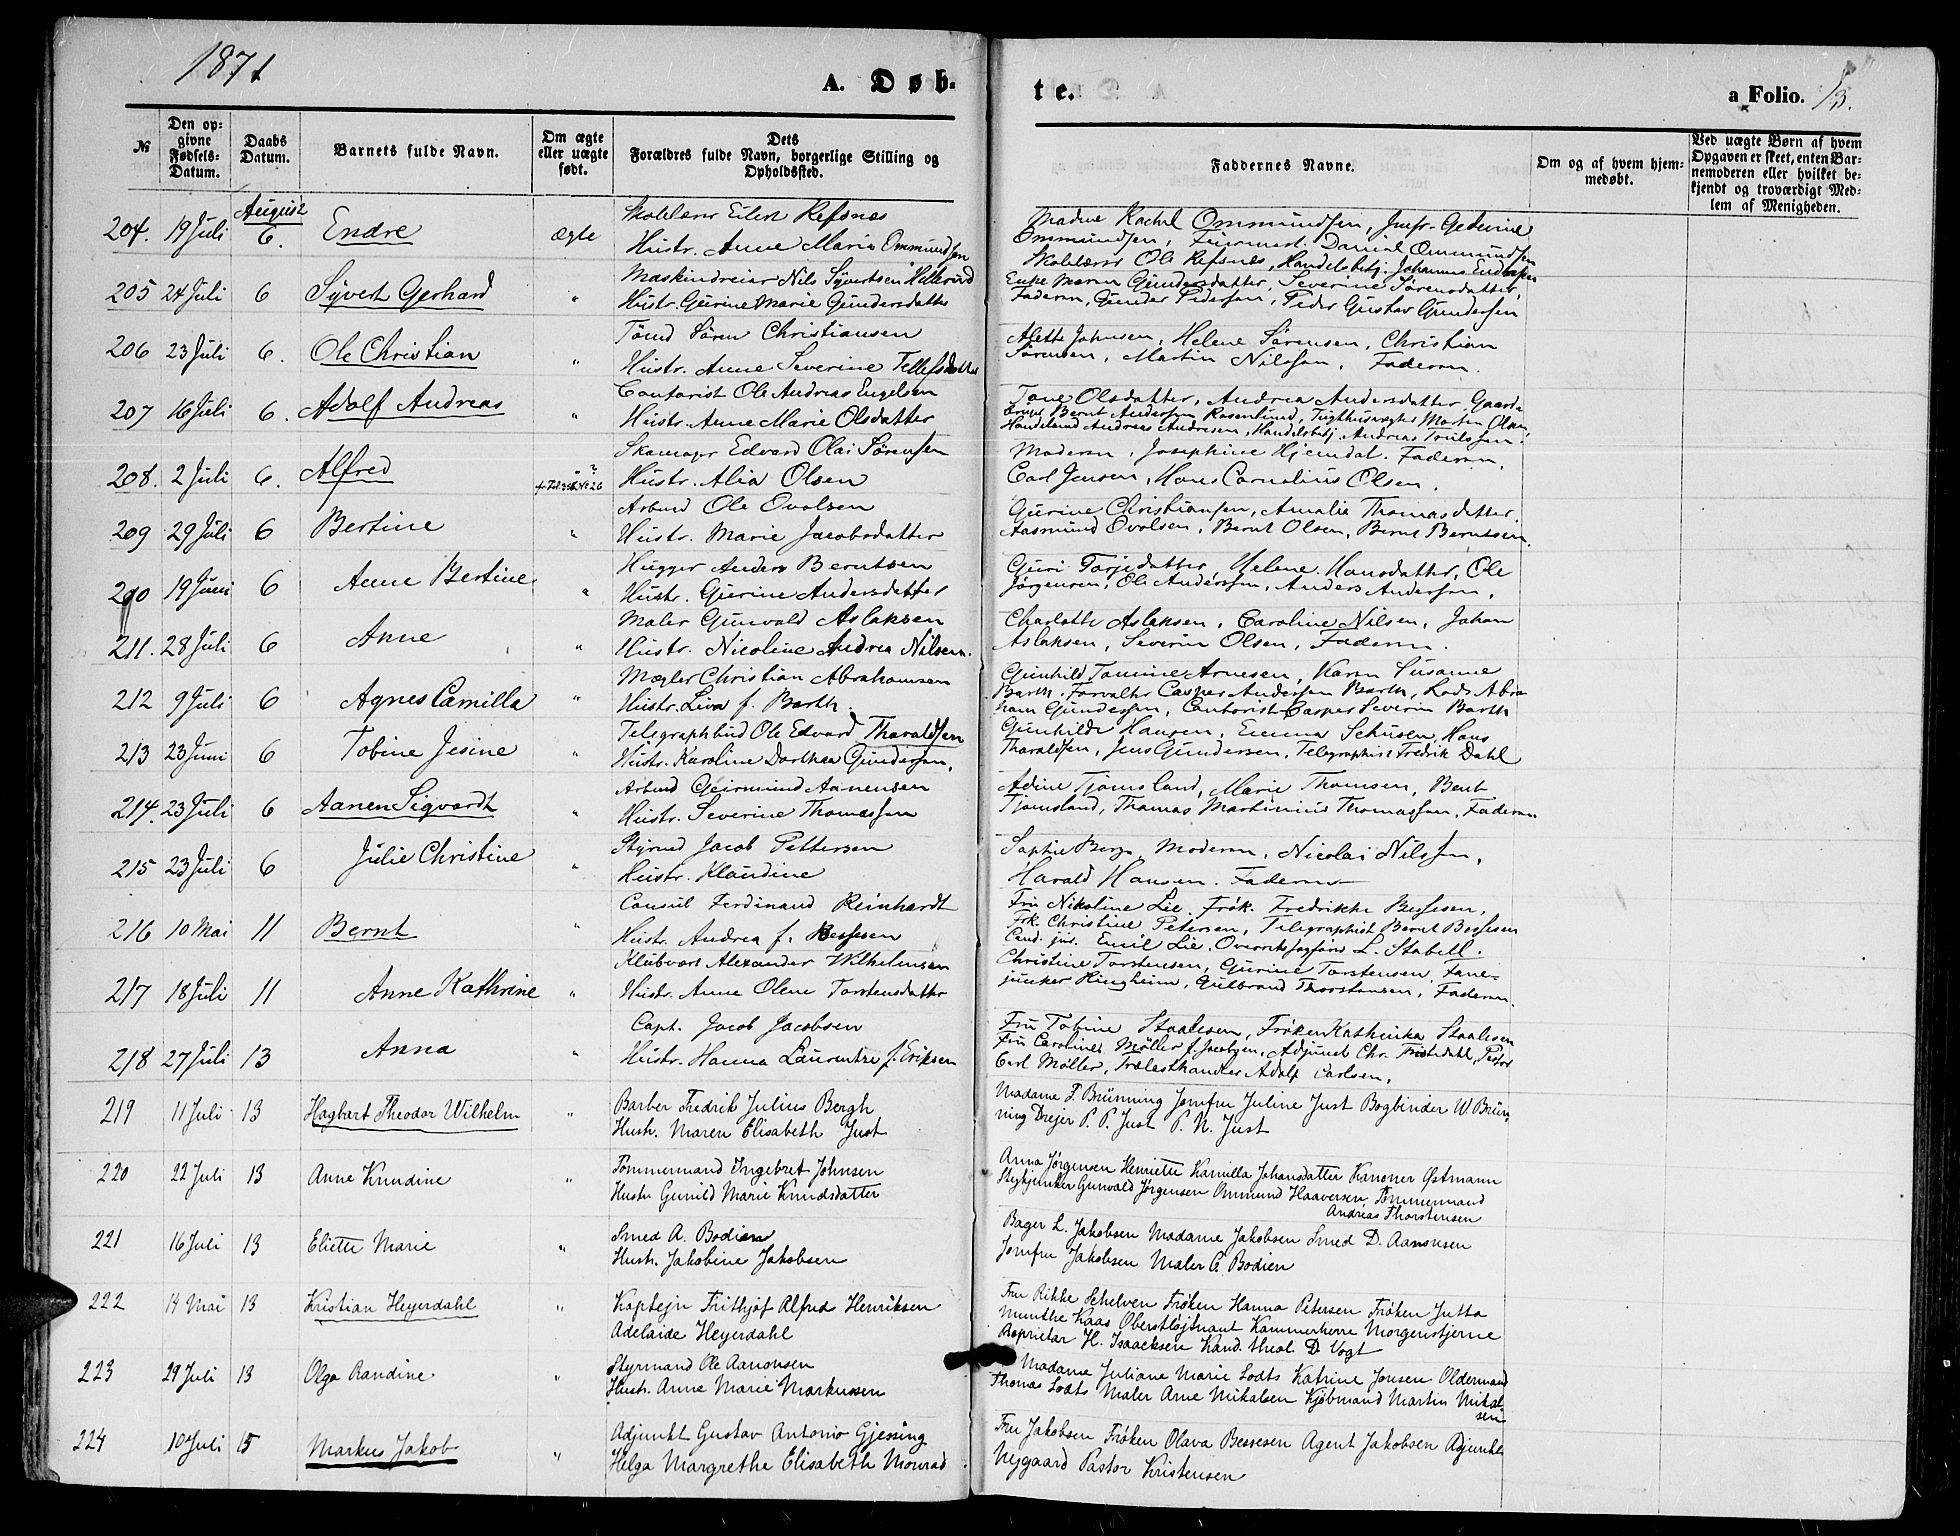 1871
A. Døb-
te.
a Folio. 13.
№
Den opgivne Fødsels-Datum.
Daabs Datum.
Barnets fulde Navn.
Om ægte eller uægte født.
Dets Forældres fulde Navn, borgerlige Stilling og Opholdssted.
Faddernes Navne.
Om og af hvem hjemmedøbt.
Ved uægte Børn af hvem Opgaven er skeet, enten Barnemoderen eller hvilket bekjendt og troværdigt Medlem af Menigheden.
August
204. 19 Juli 6. Endre ægte
Skolelærer Eilert Refsnes
Hustr. Anne Maria Ommundsen
Madme Rachel Ommundsen, Jmfr. Gedevine
Ommundsen, Daniel Ommundsen
Skolelærer Ole Refsnes, Handelsbetj. Johannes
205 24 Juli 6 Syvert Gerhard "
Maskindreier Nils Syvertsen Hillevind
Hustr. Gurine Marie Gundersdatter
Enke Maren Gundersdatter, Severine Sørensdatter,
Faderen, Gunder Pedersen, Peder Gustav Gundersen
206 23 Juli 6. Ole Christian "
Tømd Søren Christiansen
Hustr. Anne Severine Tellefsdatter
Alette Johnsen, Helene Sørensen, Christian
Sørensen, Martin Nilssen, Faderen.
207 16 Juli 6. Adolf Andreas "
Contorist Ole Andreas Engelsen
Hustr. Anne Marie Olsdatter
Tone Olsdatter, Andrea Andersdatter, Gaard-
bruger Bernt Andersen Rosenlund, Tugthusvægter Morten Olsen,
Handelsmd Andreas Andresen, Handelsbetj. Andreas
208. 2 Juli 6. Alfred
Skomager Edvard Olai Sørensen
Hustr. Alia Olsen
Moderen, Josephine Hjemdal. Faderen,
Carl Jensen, Hans Cornelius Olsen.
209 29 Juli 6 Bertine "
Arbmd Ole Ovalsen
Hustr. Marie Jacobsdatter
Gurine Christiansen, Amalia Thomasdatter
Aasmund Ovolsen, Bernt Olsen, Bernt Berntsen.
210 19 Juni 6 Anne Bertine "
Hugger Anders Berntsen
Hustr. Gurine Andersdatter
Guri Torjedatter, Helene Hansdatter, Ole
Jørgensen, Ole Anderssen, Anders Andersen,
211. 28 Juli 6 Anne "
Maler Gunvald Aslaksen
Hustr. Nicoline Andrea Nilsen.
Charlotte Aslaksen, Caroline Nilsen, Johan
Aslaksen, Severin Olsen, Faderen.
212 9 Juli 6 Agnes Camilla "
Mægler Christian Abrahamsen
Hustr. Liva f. Barth.
Gunhild Tomine Arnesen, Karen Susanne
Barth. Forvalter Casper Andersen Barth, Lods Abra
ham Gundersen, Contorist Casper Severin Barth
213 23 Juni 6 Tobine Jesine "
Telegraphbud Ole Edvard Tharaldsen
Hustr. Karoline Dorthea Gundersen,
Gunhilde Hansen, Emma Hans
Tharaldsen, Jens Gundersen, Telegraphist Fredrik Dahl
214. 23 Juli 6 Aanen Sigvardt "
Arbmd Geirmund Aanensen
Hustr. Severine Thomassen
Adine Tjomsland, Marie Thomsen, Bent
Tjomsland, Thomas Martinius Thomassen, Faderen
215 23 Juli 6 Julie Christine "
Styrmd Jacob Pettersen
Hustr. Klaudine
Sophie Berge Moderen, Nicolai Nilssen,
Harald Hansen. Faderen
216 10 Mai 11 Bernt "
Consul Ferdinand Reinhardt
Hustr. Andrea f. Bessesen
Fru Nikoline Lie. Frøk. Fredrikke Bessesen,
Frk. Christine Petersen, Telegraphist Bernt Bessesen
Cand. jur. Emil Lie, Overretssagfører L. Stabell.
217 18 Juli 11 Anne Kathrine "
Klubvært Alexander Wilhelmsen
Hustr. Anne Olene Torstensdatter
Christine Torstensen, Gurine Torstensen, Fane-
junker Ringheim, Gulbrand Thorstensen, Faderen.
218 27 Juli 13 Anna "
Capt. Jacob Jacobsen
Hustr. Hanna Laurentze f. Eriksen
Fru Tobine Staalesen, Frøken Kathinka Staalesen
Fru Caroline Møller f. Jacobsen, Adjunct Chr. Pastor
Carl Møller, Trælasthandler Adolf Carlsen,
219 11 Juli 13 Hagbart Theodor Wilhelm "
Barber Fredrik Julius Bergh
Hustr. Maren Elisabeth Just
Madame F. Brünning Jomfru Juline Just Bogbinder W. Brün
ning Drejer P. P. Just P. N. Just
220 22 Juli 13 Anne Knudine "
Tømmermand Ingebret Johnsen
Hustr Gunild Marie Knudsdatter
Anna Jørgensen Henriette Kamilla Johansdatter Kanoner Østmann
Stykjunker Gunvald Jørgensen Ommund Haaversen Tømmermand
Andreas Thorstensen
221 16 Juli 13 Eliette Marie "
Smed A. Bodien
Hustr. Jakobine Jakobsen
Bager L. Jakobsen Madame Jakobsen Smed D. Aanonsen
Jomfru Jakobsen Maler G. Bodien
222 14 Mai 13 Kristian Heyerdahl "
Kaptejn Frithjof Alfred Henriksen
Adelaide Heyerdahl
Fru Rikke Schelven Frøken Hanna Petersen Frøken Jutta
Munthe Kaas Oberstløjtnant Kammerherre Morgenstjerne
Proprietær H. Isaacksen Kand. theol D. Vogt
223 29 Juli 13 Olga Randine "
Styrmand Ole Aanonsen
Hustr. Anne Marie Markussen
Madame Juliane Marie Lodts Katrine Jensen Oldermand
Thomas Lodts Maler Arne Mikalsen Kjøbmand Martin Mikal
sen
224 10 Juli 15 Markus Jakob "
Adjunkt Gustav Antonio Gjessing
Helga Margrethe Elisabeth Monrad
Fru Jakobsen Frøken Olava Bessesen Agent Jakobsen Adjunkt
Nygaard Pastor Kristensen